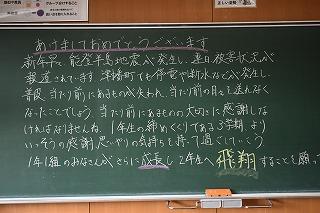 グループ分けすること
正しい姿勢
あけましておめでとうございます
新年早々、能登半島地震が発生し、連日被害状況が
報道されています。津幡町でも停電や断水などが発生し、
普段、当たり前にあるものが失われ、当たり前の日々を送れなく
なったことでしょう。当たり前にあるものの大切さに感謝しな
ければなりませんね。1年生の締めくくりである3学期、より
いっそうの感謝、思いやりの気持ちを持って過ごしていこう
1年1組のみなさんが、さらに成長し、2年生へ飛翔することを願っ